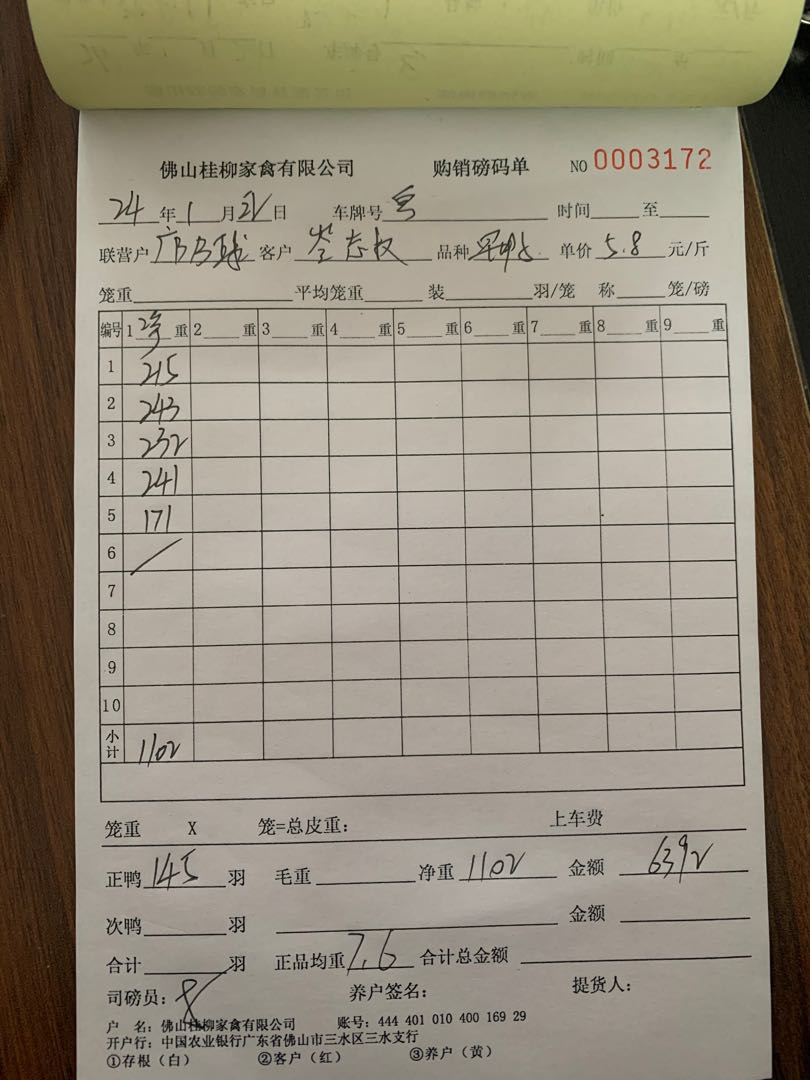 佛山桂柳家禽有限公司 购销磅码单 NO 0003172
24 年 1 月 21 日 车牌号 时间 至
联营户 客户 岑志权 品种 单价 5.8 元/斤
笼重 平均笼重 装 羽/笼 称 笼/磅
编号 1 净 重 2 重 3 重 4 重 5 重 6 重 7 重 8 重 9 重
1 215
2 243
3 232
4 241
5 171
6
7
8
9
10
小计 1102
笼重 X 笼=总皮重: 上车费
正鸭 145 羽 毛重 净重 1102 金额 6392
次鸭 羽 金额
合计 羽 正品均重 7.6 合计总金额
司磅员: 养户签名: 提货人:
户 名: 佛山桂柳家禽有限公司 账号: 444 401 010 400 169 29
开户行: 中国农业银行广东省佛山市三水区三水支行
①存根(白) ②客户(红) ③养户(黄)